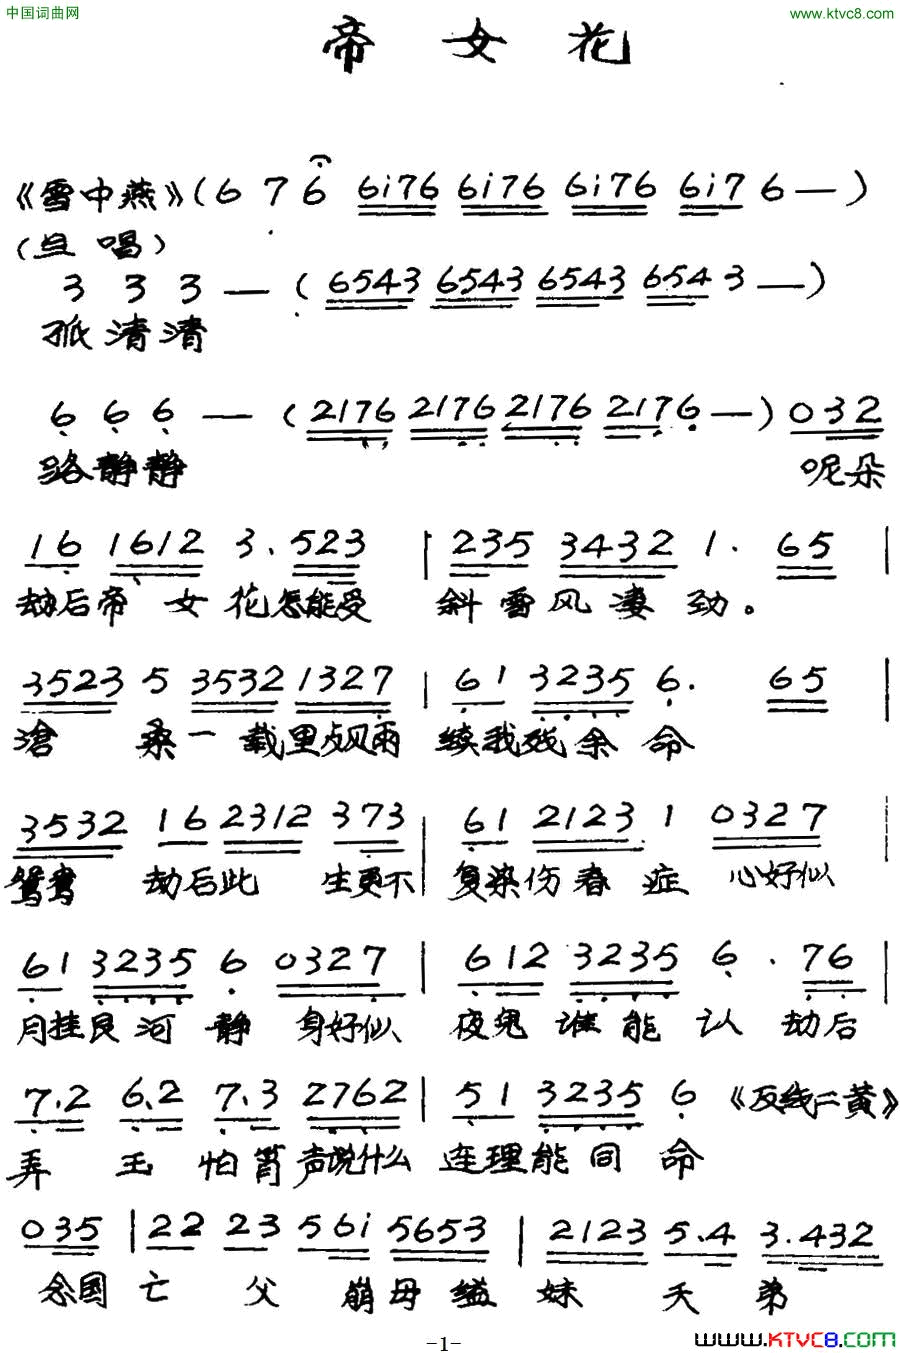 中国词曲网
www.ktvc8.com
帝女花
《雪中燕》(6 7 6 6i76 6i76 6i76 6i7 6 —)
(旦唱)
3 3 3 — (6543 6543 6543 654 3 —)
孤清清
6 6 6 — (2176 2176 2176 217 6 —) 032
路静静 呢朵
16 1612 3. 523 | 235 3432 1. 65 |
劫后帝女花怎能受 斜雪风凄劲。
3523 5 3532 1327 | 61 3235 6. 65 |
沧桑一载里 风雨 续我残余命
3532 16 2312 373 | 61 2123 1 0327 |
鸳鸯 劫后此生更不 复染伤春症 心好似
61 3235 6 0327 | 612 3235 6. 76 |
月挂良河静 身好似 夜鬼谁能认 劫后
7.2 6.2 7.3 2762 | 51 3235 6 《反线二黄》
弄玉怕箫声说什么 连理能同命
035 | 22 23 56i 5653 | 2123 5.4 3.432
念国亡父崩母缢妹夭弟
-1-
www.KTVC8.com